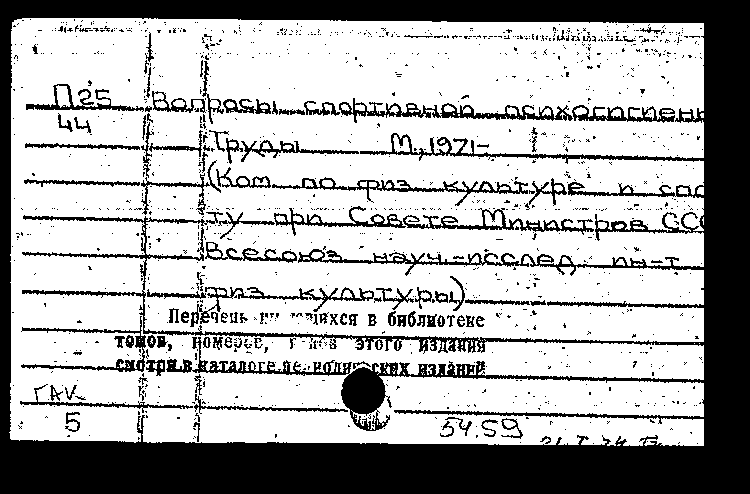 П25 Вопросы спортивной психогигиены
44
Труды М., 1971-
(Ком. по физ. культуре и спо
ту при Совете Министров ССС
Всесоюз. науч.-исслед. ин-т
физ. культуры)
Перечень имеющихся в библиотеке
томов, номеров, годов этого издания
смотри в каталоге периодических изданий
ГАК
5
54.59